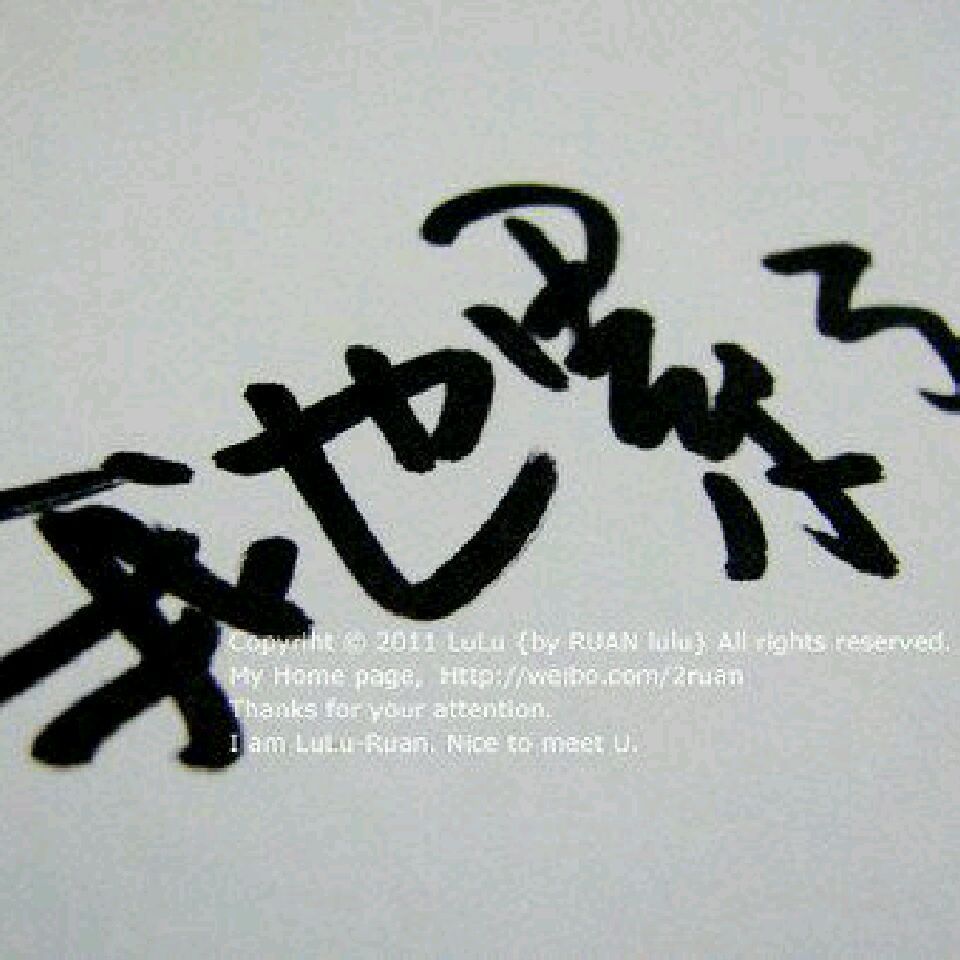 我也累了
Copyright © 2011 LuLu {by RUAN lulu} All rights reserved.
My Home page, Http://weibo.com/2ruan
Thanks for your attention.
I am LuLu-Ruan. Nice to meet U.